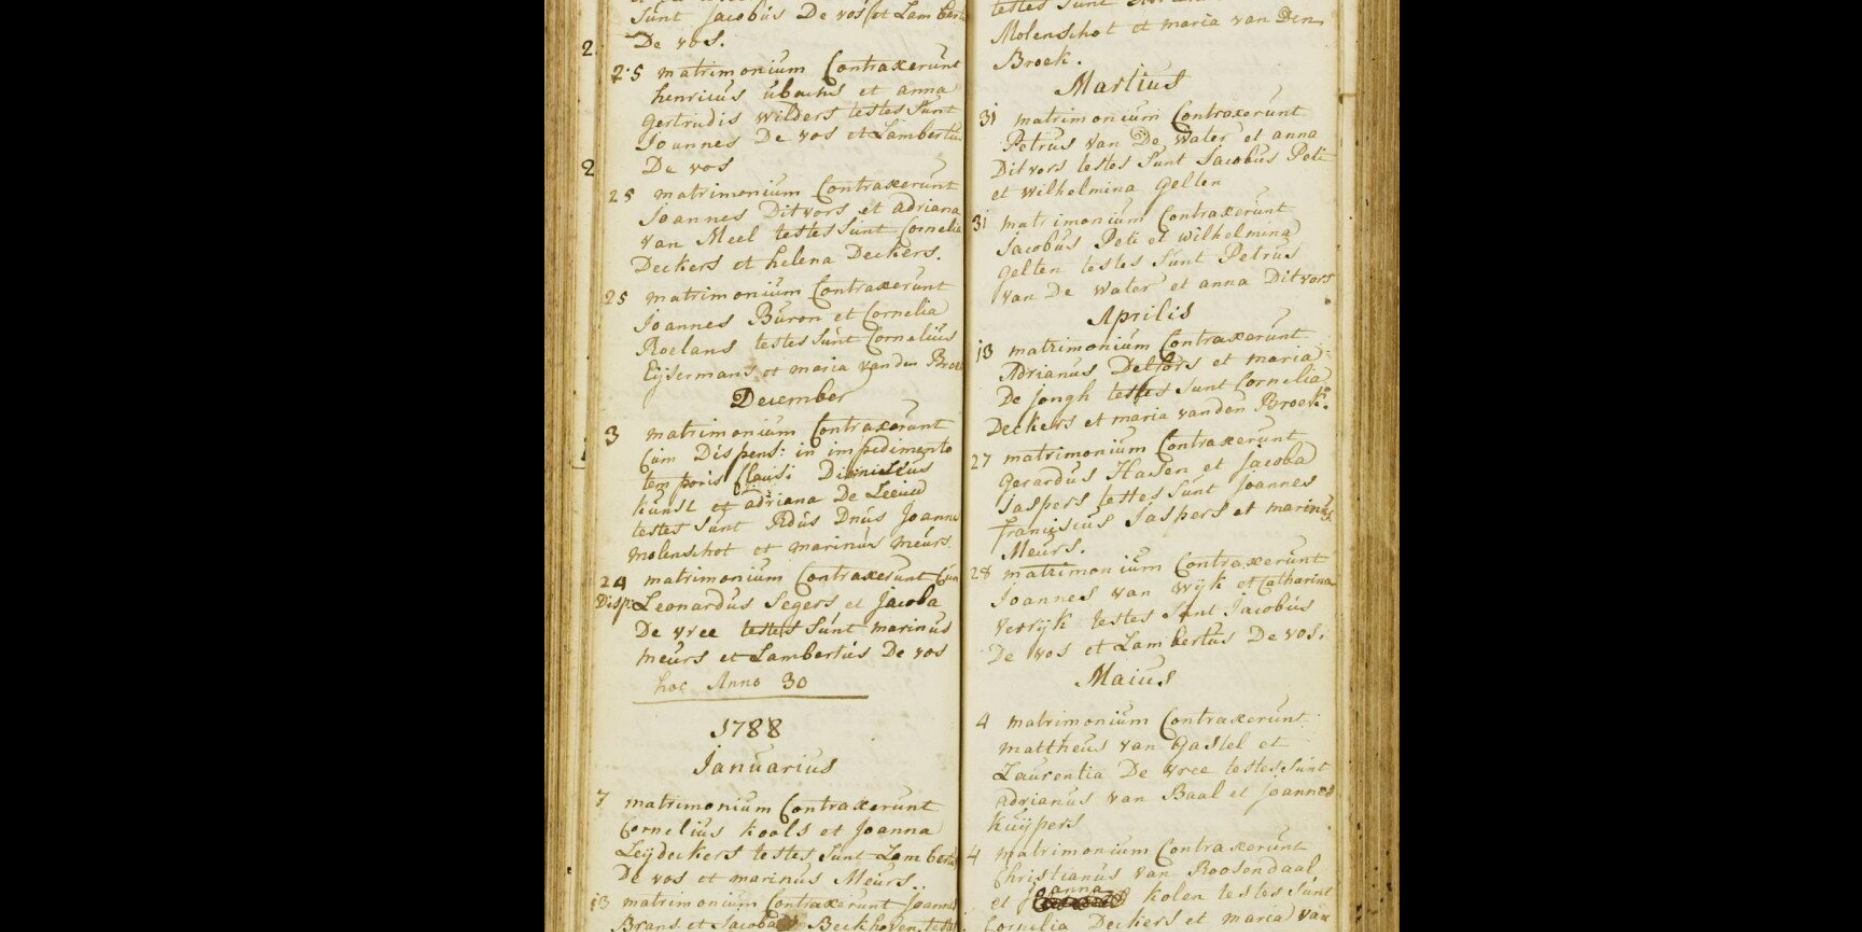 Sunt Jacobus De vos et Lambert
De vos.
2
25 matrimonium Contraxerunt
henricus ubachs et anna
gertrudis wilders testes sunt
Joannes De vos et Lambertu
2
De vos
25 matrimonium Contraxerunt
Joannes Ditvors et adriana
van Meel testes sunt Cornelia
Deckers et helena Deckers.
25 matrimonium Contraxerunt
Joannes Buron et Cornelia
Roelans testes sunt Cornelius
Eijsermans et maria vanden Broe
December
3 matrimonium Contraxerunt
Cum Dispens: in impedimento
temporis Clausi Dionisius
kunst et adriana De Leeuw
testes sunt Rdus Dnus Joanne
molenschot et marinus meurs
24 matrimonium Contraxerunt Cum
Disp: Leonardus Segers et Jacoba
De vree testes sunt marinus
meurs et Lambertus De vos
hoc Anno 30
1788
Januarius
7 matrimonium Contraxerunt
Cornelius kools et Joanna
Leijdeckers testes sunt Lambertus
De vos et marinus Meurs..
13 matrimonium Contraxerunt Joannes
Brans et Jacoba Beckhoven testes
testes sunt
Molenschot et maria van Den
Broek.
Martius
31 matrimonium Contraxerunt
Petrus van De Water et anna
Ditvors testes sunt Jacobus Peti
et wilhelmina gelten
31 matrimonium Contraxerunt
Jacobus Peti et wilhelmina
gelten testes sunt Petrus
van De Water et anna Ditvors
Aprilis
13 matrimonium Contraxerunt
Adrianus Deltors et maria
De jongh testes sunt Cornelia
Deckers et maria vanden Broek.
27 matrimonium Contraxerunt
Gerardus Hasen et Jacoba
Jaspers testes sunt Joannes
franciscus Jaspers et marinus
Meurs.
28 matrimonium Contraxerunt
Joannes van Wijk et Catharina
Verrijk testes sunt Jacobus
De vos et Lambertus De vos.
Maius
4 matrimonium Contraxerunt
mattheus van Gastel et
Laurentia De vree testes sunt
adrianus van Baal et Joannes
Kuijpers
4 matrimonium Contraxerunt
Christianus van Roosendaal
et Joanna kolen testes sunt
Cornelia Deckers et maria van